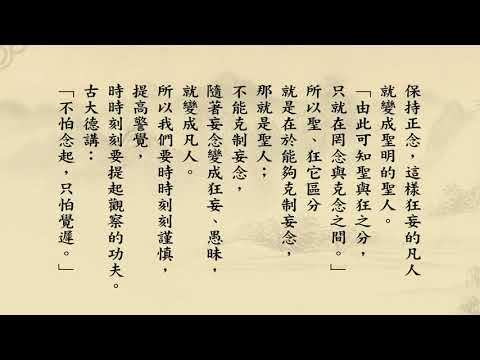 保持正念，這樣狂妄的凡人
就變成聖明的聖人。
「由此可知聖與狂之分，
只就在罔念與克念之間。」
所以聖、狂它區分
就是在於能夠克制妄念，
那就是聖人；
不能克制妄念，
隨著妄念變成狂妄、愚昧，
就變成凡人。
所以我們要時時刻刻謹慎，
提高警覺，
時時刻刻要提起觀察的功夫。
古大德講：
「不怕念起，只怕覺遲。」